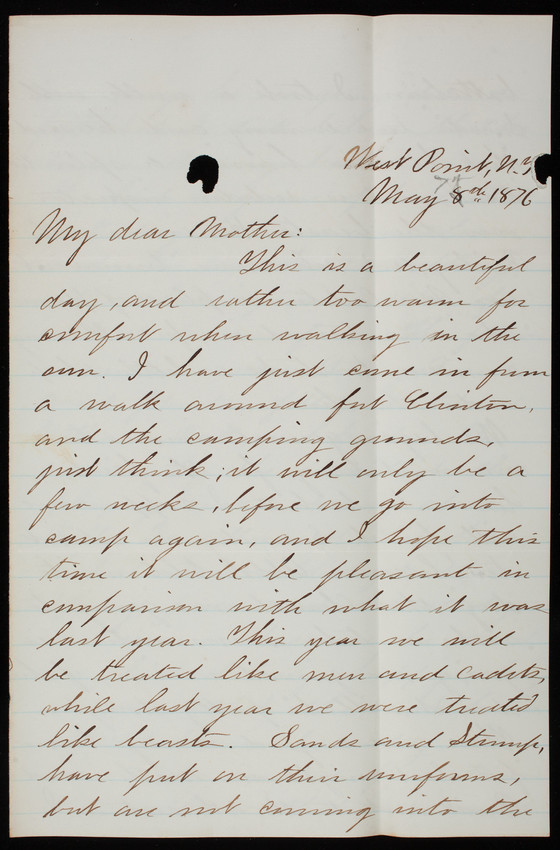 West Point, N.Y.
May 8th 1876
My dear Mother:
This is a beautiful
day, and rather too warm for
comfort when walking in the
sun. I have just come in from
a walk around fort Clinton,
and the camping grounds,
just think; it will only be a
few weeks, before we go into
camp again, and I hope this
time it will be pleasant in
comparison with what it was
last year. This year we will
be treated like men and cadets,
while last year we were treated
like beasts. Sands and Stump,
have put on their uniforms,
but are not coming into the